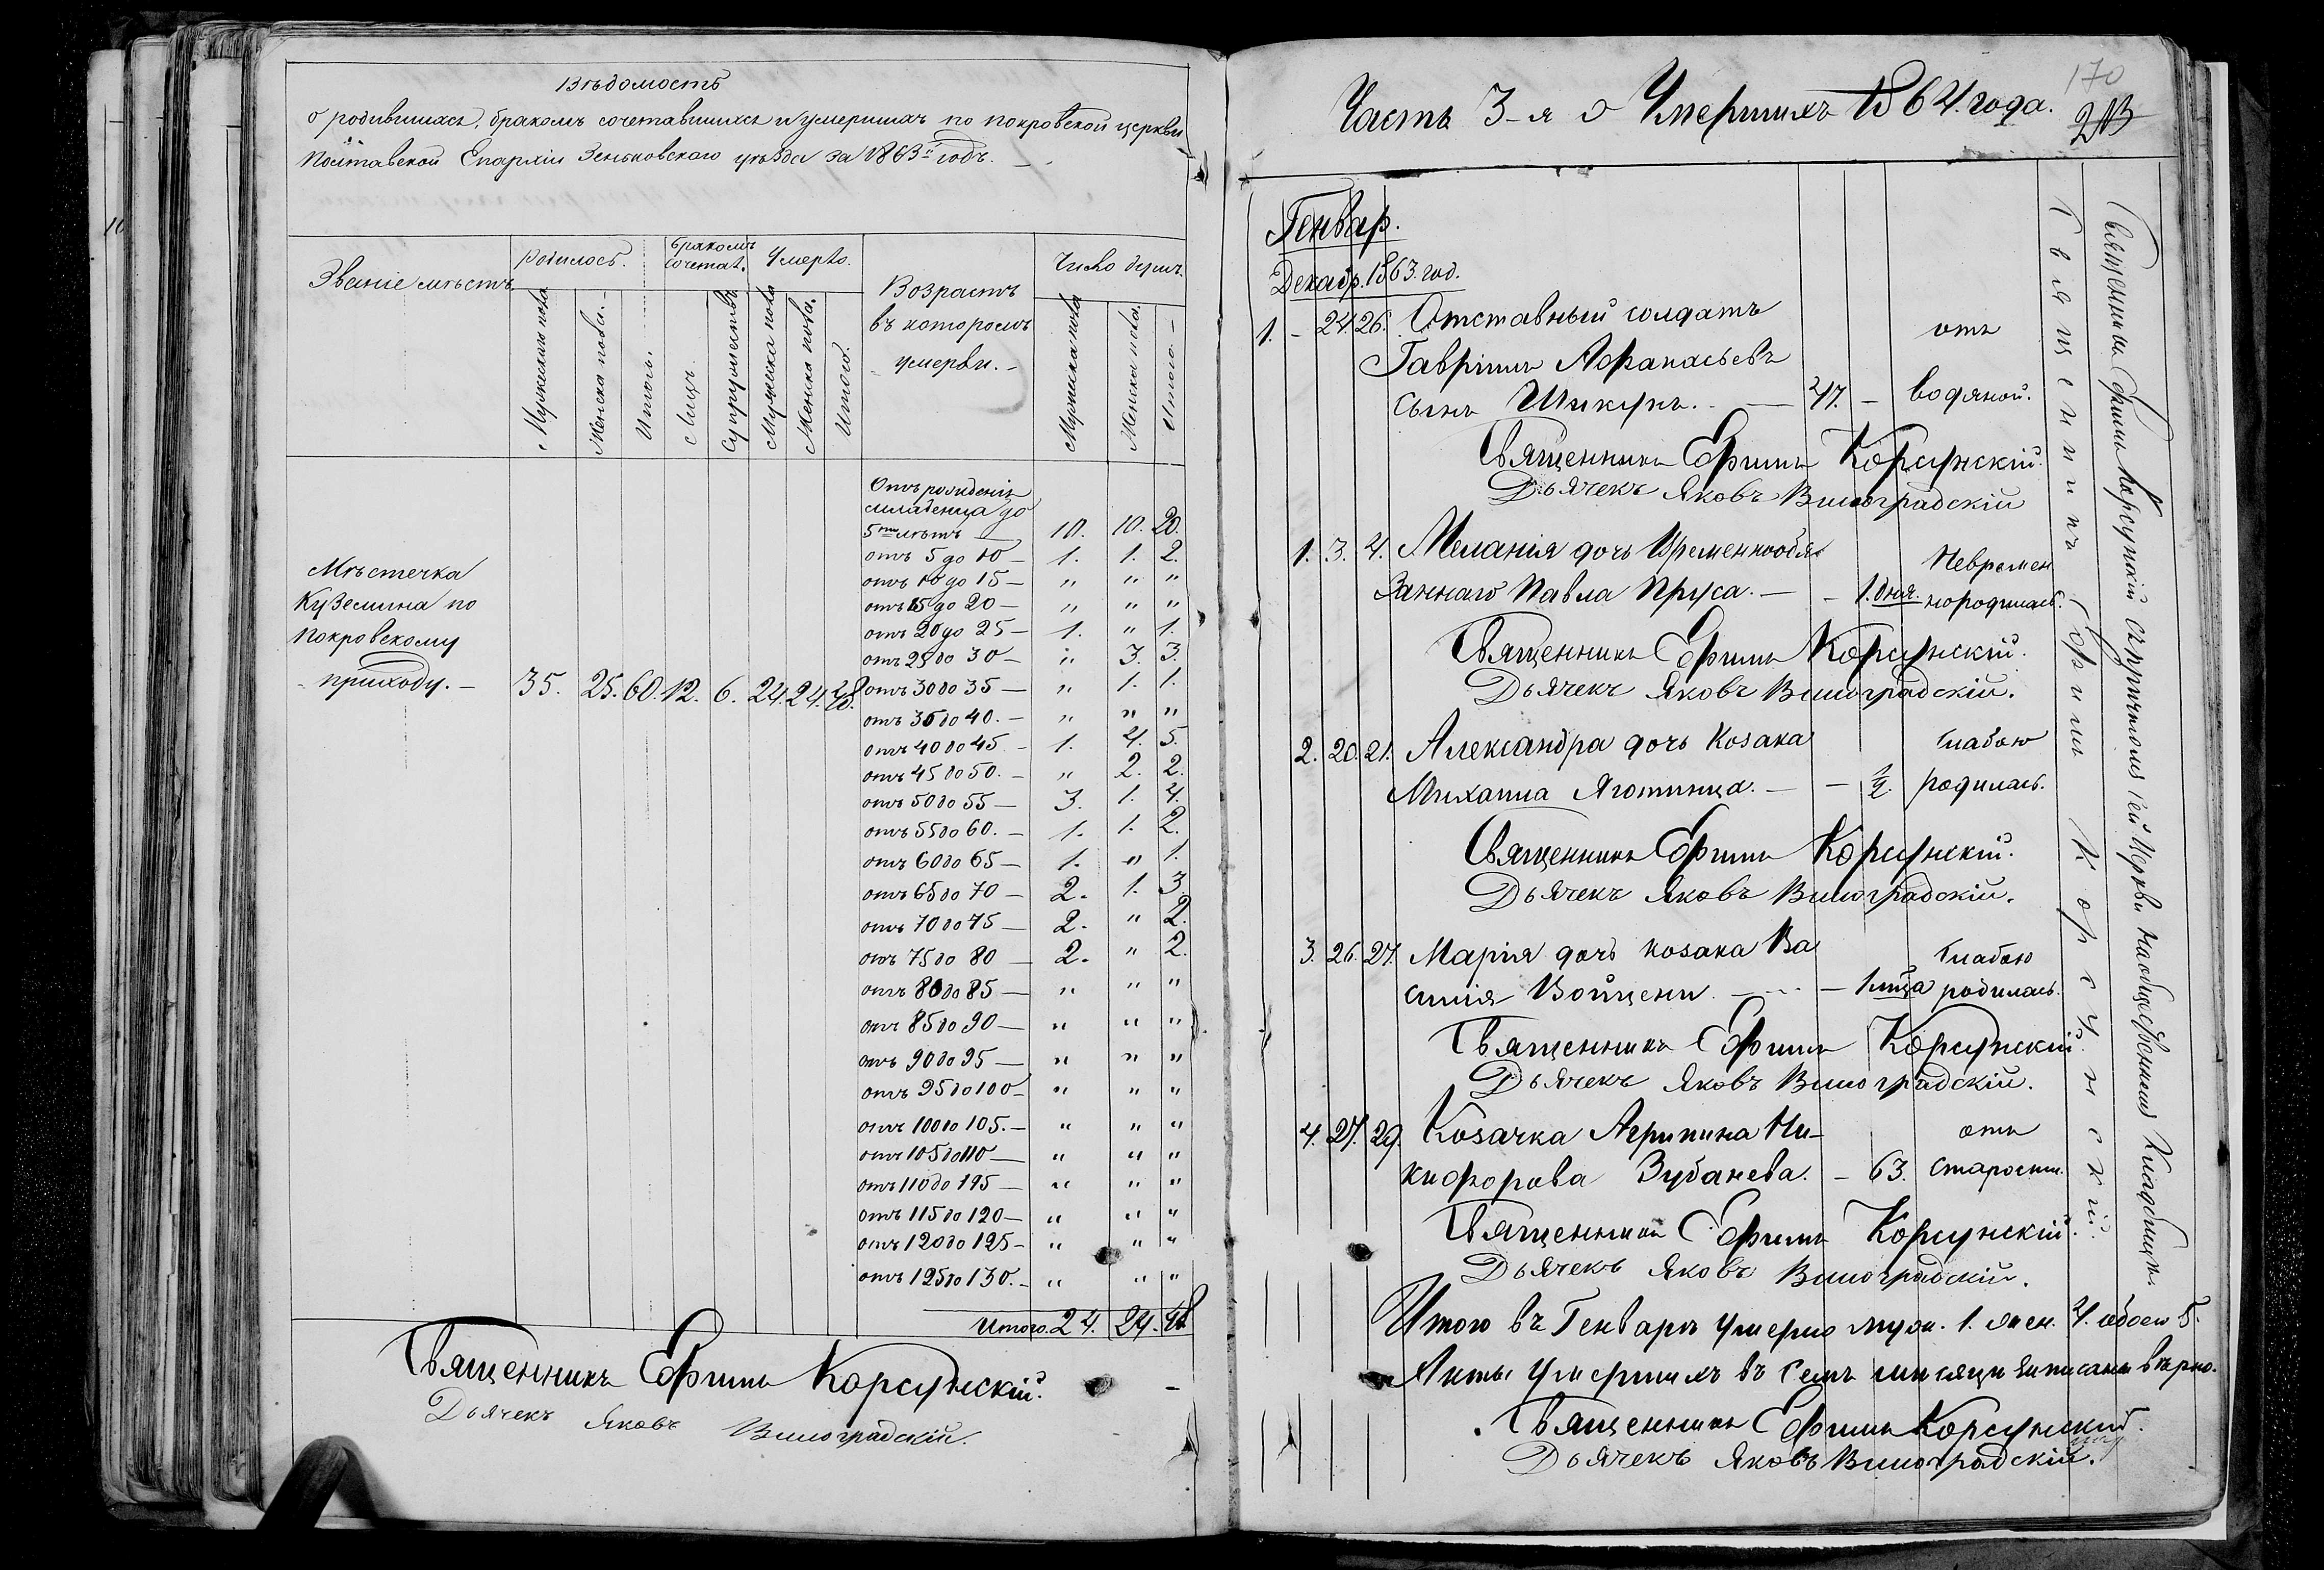 Вѣдомость
о родившихся, бракомъ сочетавшихся и умершихъ по покровской церкви
Полтавской Епархіи Зеньковского уѣзда за 1863й годъ.
Званіе мѣстъ
Родилось.
Бракомъ сочетат.
Умерло.
Возрастъ въ которомъ умерли.
Число душъ.
Мужеска пола
Женска пола.
Итого.
Лицъ.
Супружествъ
Мужеска пола
Женска пола.
Итого.
Мужеска пола
Женска пола.
Итого
Мѣстечка
Куземина по
Покровскому
приходу. 35. 25. 60. 12. 6. 24. 24. 48.
Отъ рожденія
младенца до
5ти лѣтъ 10. 10. 20.
отъ 5 до 10 1. 1. 2.
отъ 10 до 15 " " "
отъ 15 до 20 " " "
отъ 20 до 25 1. " 1.
отъ 25 до 30 " 3. 3.
отъ 30 до 35 " 1. 1.
отъ 35 до 40. " " "
отъ 40 до 45 1. 4. 5.
отъ 45 до 50. " 2. 2.
отъ 50 до 55 3. 1. 4.
отъ 55 до 60. 1. 1. 2.
отъ 60 до 65 1. " 1.
отъ 65 до 70 2. 1. 3.
отъ 70 до 75 2. " 2.
отъ 75 до 80 2. " 2.
отъ 80 до 85 " " "
отъ 85 до 90 " " "
отъ 90 до 95 " " "
отъ 95 до 100 " " "
отъ 100 до 105. " " "
отъ 105 до 110 " " "
отъ 110 до 115 " " "
отъ 115 до 120 " " "
отъ 120 до 125 " " "
отъ 125 до 130. " " "
Итого. 24. 24. 48
Священникъ Ефимъ Корсунскій.
Дьячекъ Яковъ Виноградскій.
170
Часть 3-я о Умершихъ 1864 года.
Генвар.
Декабр. 1863. год.
1. - 24. 26. Отставный солдатъ отъ
Гавріилъ Афанасьевъ
сынъ Шикунъ. 47. - водяной.
Священникъ Ефимъ Корсунскій.
Дьячекъ Яковъ Виноградскій
1. 3. 4. Меланія дочь Временнообя- Невремен
заннаго Павла Пруса. - 1. дня. нородилась.
Священникъ Ефимъ Корсунскій.
Дьячекъ Яковъ Виноградскій.
2. 20. 21. Александра дочь Козака слабою
Михаила Яготинца. - ½. родилась.
Священникъ Ефимъ Корсунскій.
Дьячекъ Яковъ Виноградскій.
3. 26. 27. Марія дочь козака Ва слабою
силія Войцени - 1 мца родилась.
Священникъ Ефимъ Корсунскій
Дьячекъ Яковъ Виноградскій.
4. 27. 29. Козачка Агрипина Ни- отъ
кифорова Зубанева. - 63. старости.
Священникъ Ефимъ Корсунскій.
Дьячекъ Яковъ Виноградскій.
Итого въ Генварѣ умерло муж. 1. жен. 4. обоего 5.
Акты Умершихъ въ семъ мѣсяцѣ записаны вѣрно.
Священникъ Ефимъ Корсунскій.
Дьячекъ Яковъ Виноградскій.
Священникъ Ефимъ Корсунскій
Священникъ Ефимъ Корсунскій съ причтомъ сей Церкви на общественномъ Кладбищѣ.